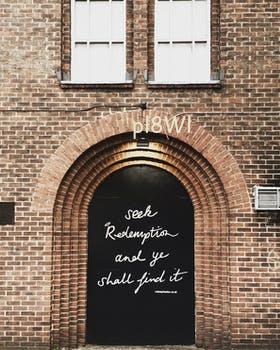 pI8WI
seek
Redemption
and ye
shall find it